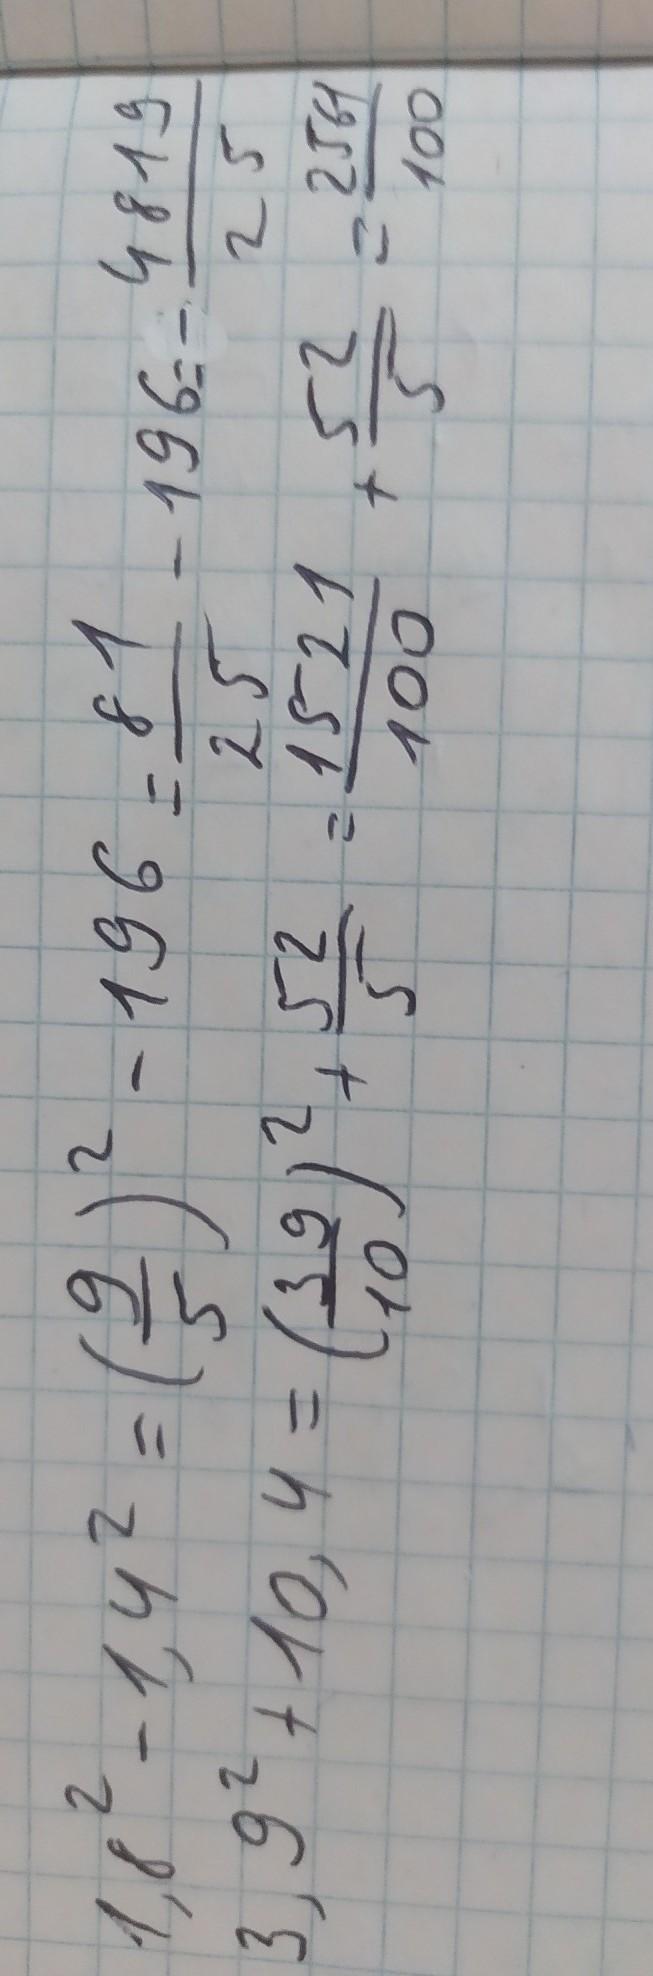 1,8² - 1,4² = (9/5)² - 196 = 81/25 - 196 = - 4819/25
3,9² + 10,4 = (39/10)² + 52/5 = 1521/100 + 52/5 = 2561/100